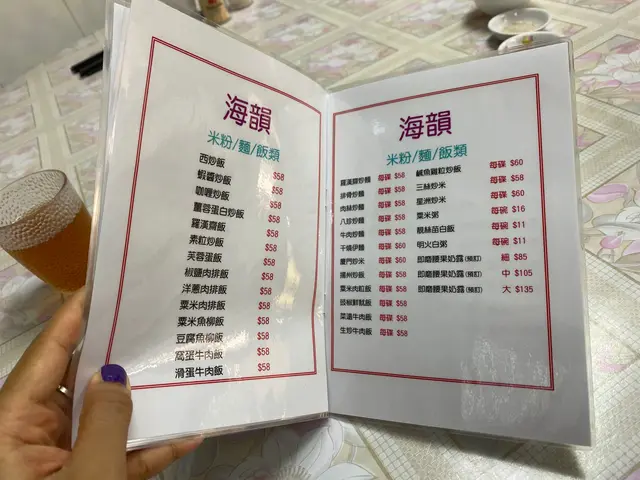 海韻
米粉/麵/飯類
西炒飯 $58
蝦醬炒飯 $58
咖喱炒飯 $58
薑蓉蛋白炒飯 $58
羅漢齋飯 $58
素粒炒飯 $58
芙蓉蛋飯 $58
椒鹽肉排飯 $58
洋蔥肉排飯 $58
粟米肉排飯 $58
粟米魚柳飯 $58
豆腐魚柳飯 $58
窩蛋牛肉飯 $58
滑蛋牛肉飯 $58
海韻
米粉/麵/飯類
羅漢齋炒麵 每碟 $58
排骨炒麵 每碟 $58
肉絲炒麵 每碟 $58
八珍炒麵 每碟 $58
牛肉炒麵 每碟 $58
干燒伊麵 每碟 $60
廈門炒米 每碟 $58
揚州炒飯 每碟 $58
粟米肉粒飯 每碟 $58
豉椒鮮魷飯 每碟 $58
菜遠牛肉飯 每碟 $58
生炒牛肉飯 每碟 $58
鹹魚雞粒炒飯 每碟 $60
三絲炒米 每碟 $58
星洲炒米 每碟 $60
粟米粥 每碗 $16
靚絲苗白飯 每碗 $11
明火白粥 每碗 $11
即磨腰果奶露(預訂) 細 $85
即磨腰果奶露(預訂) 中 $105
即磨腰果奶露(預訂) 大 $135